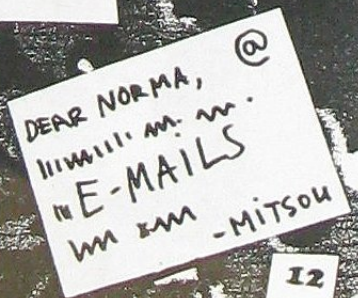 @
DEAR NORMA,
E-MAILS
-MITSOU
12